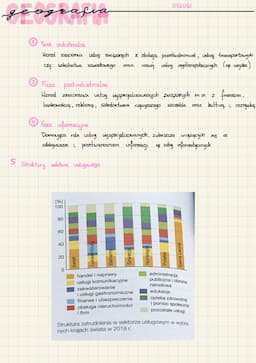 GEOGRAFIA
geografia
USŁUGI
② Faza industrialna
Wzrost znaczenia usług związanych z obsługą przedsiębiorstw, usług transportowych
czy szkolnictwa zawodowego oraz rozwój usług
③ Faza postindustrialna
Wzrost znaczenia usług wyspecjalizowanych związanych m.in. z finansami,
bankowością, reklamą, szkolnictwem wyższego szczebla oraz kulturą i rozrywką
④ Faza informacyjna
Dominująca rola usług wyspecjalizowanych, zwłaszcza
i przetwarzaniem informacji np. usług informatycznych
5 Struktury sektora usługowego
[%]
100
80
60
40
20
0
handel i naprawy
usługi komunikacyjne
zakwaterowanie
i usługi gastronomiczne
finanse i ubezpieczenia
obsługa nieruchomości
i firm
administracja
publiczna i obrona
narodowa
edukacja
opieka zdrowotna
i pomoc społeczna
pozostałe usługi
Struktura zatrudnienia w sektorze usługowym w wybra-
nych krajach świata w 2018 r.